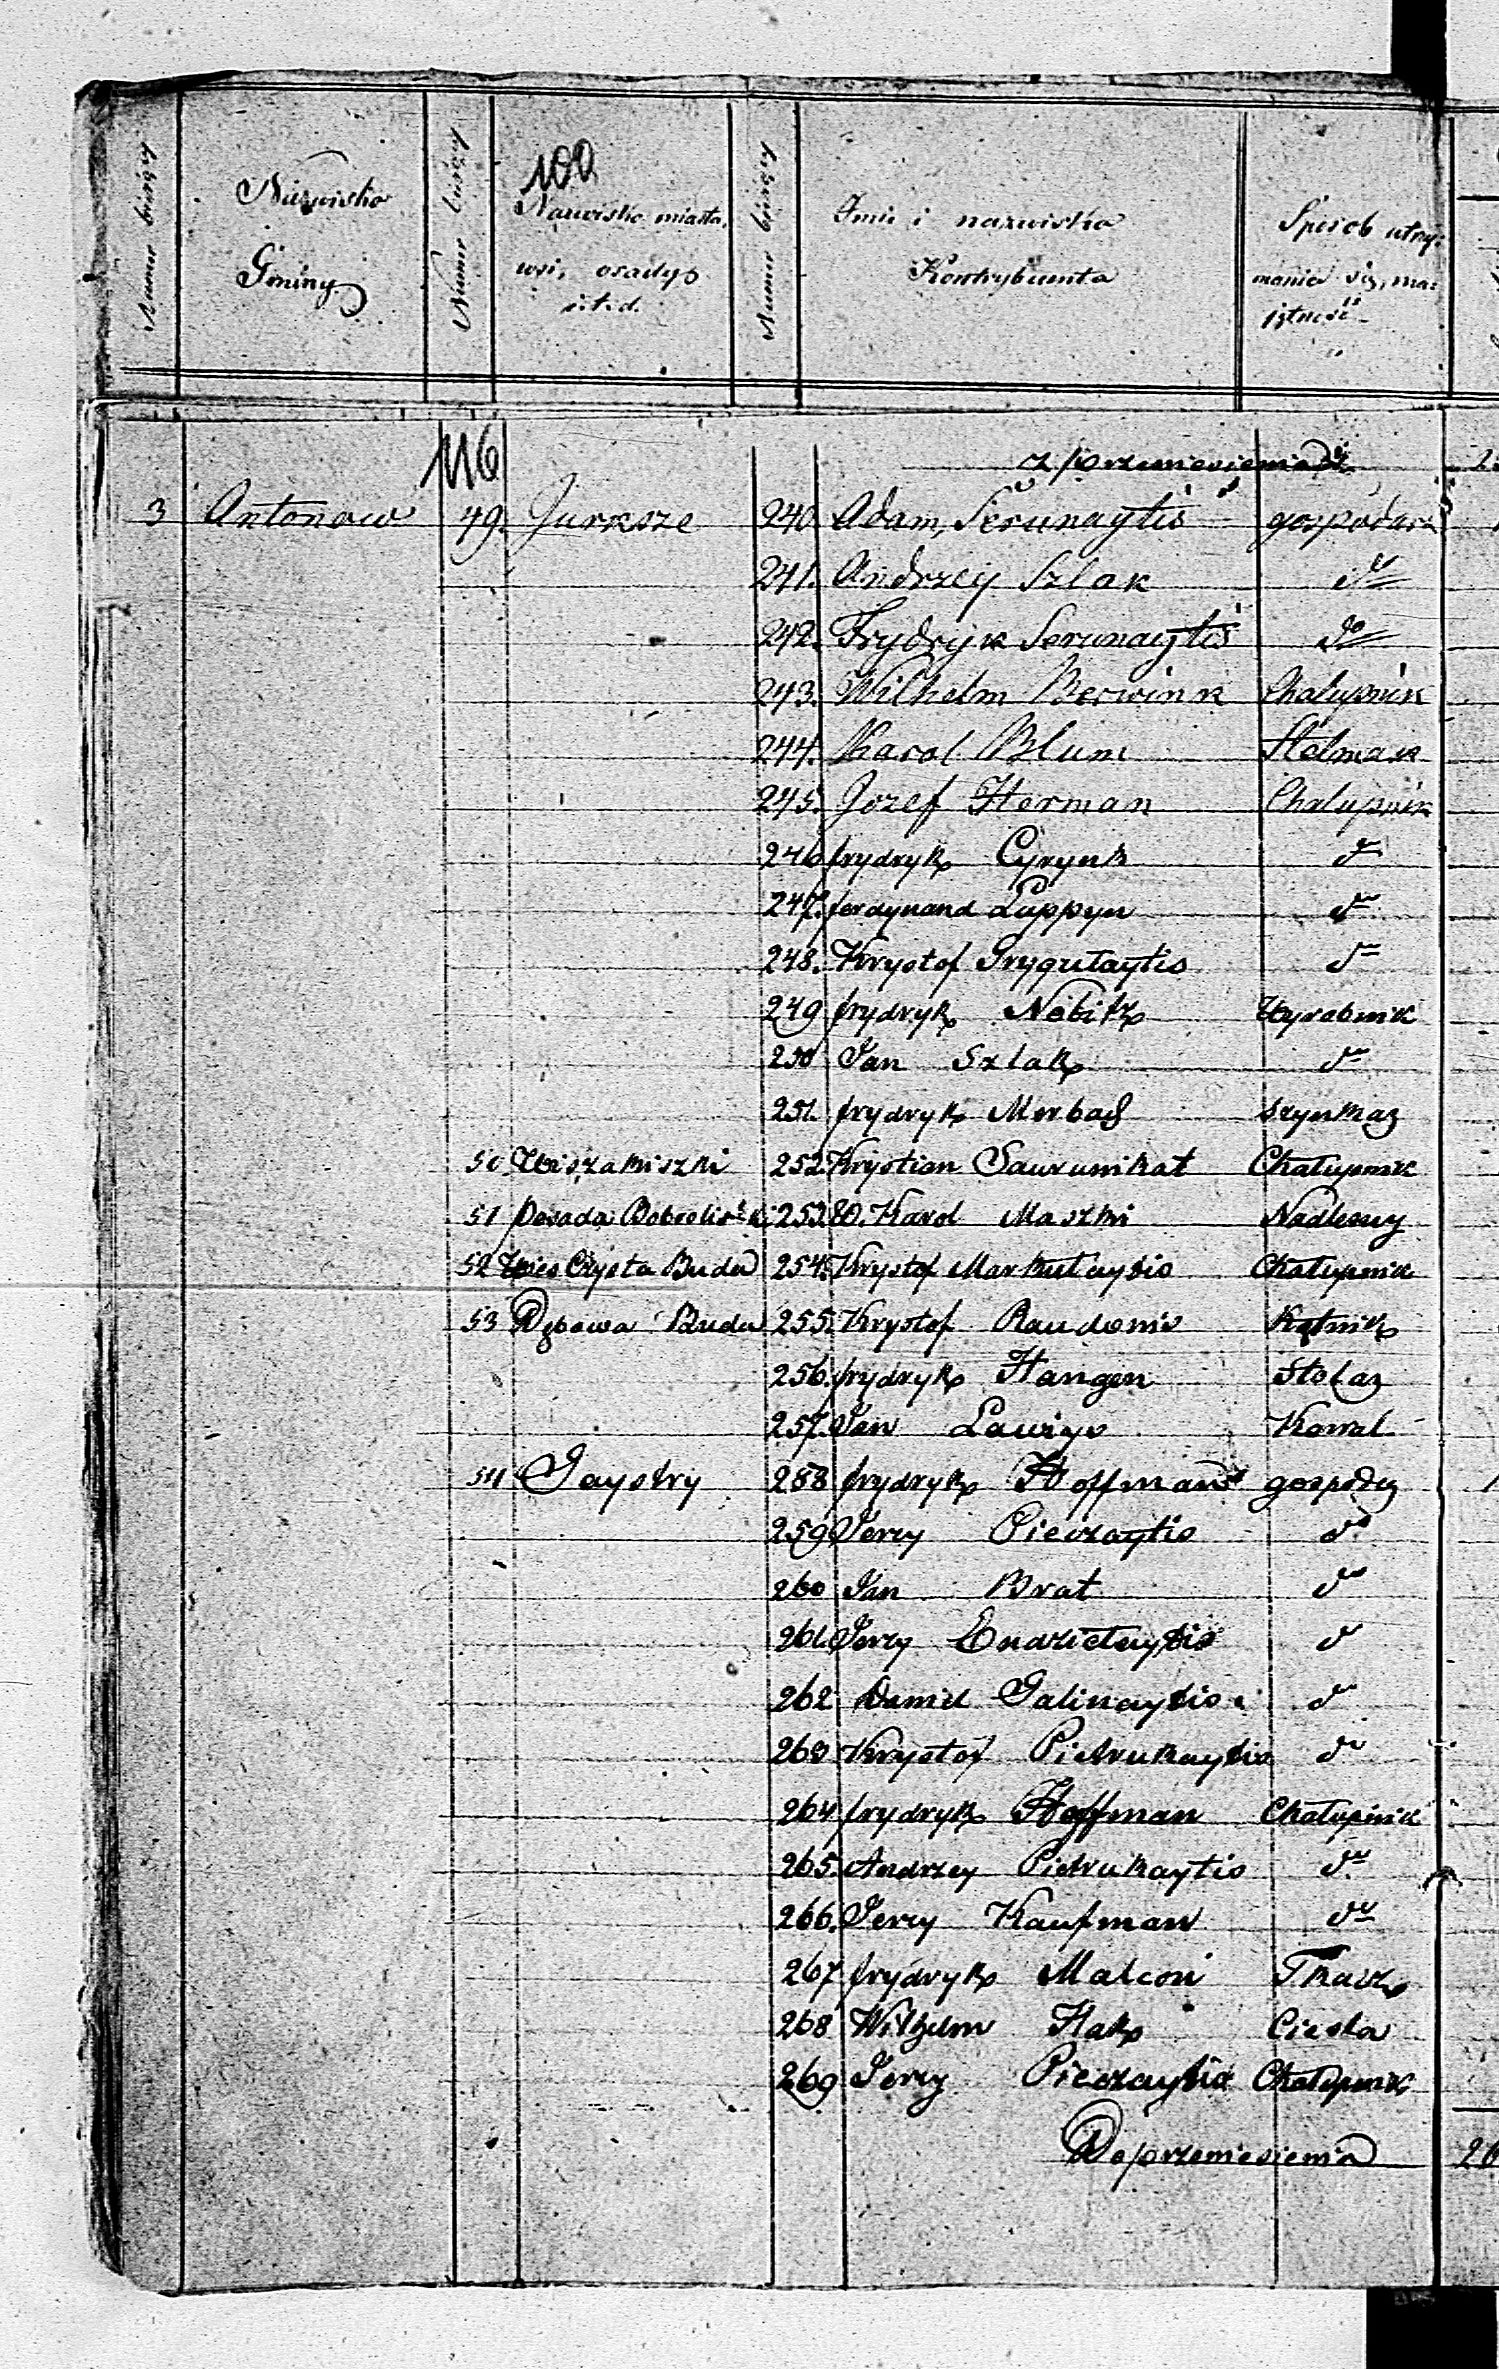 Numer bieżący Nazwisko Gminy Numer bieżący 100 Nazwisko miasta, wsi, osady i.t.d. Numer bieżący Imie i nazwisko Kontrybuenta Sposob utrzymania się, majętność
116 z przeniesienia
3 Antonow 49. Jurksze 240. Adam Serunaytis gospodarz
241. Andrzey Szlak do
242. Frydryk Serunaytis do
243. Wilhelm Berwink Chałupnik
244. Karol Blum Stelmak
245. Jozef Herman Chałupnik
246 frydryk Cyrynk do
247. ferdynand Luppyn do
248. Krystof Grygutaytis do
249 frydryk Nebitz Wyrobnik
250 Jan Szlak do
251. frydryk Merbach Szynkarz
50 Wiszakiszki 252. Krystian Saurunikat Chałupnik
51 Posada 253. Karol Maszki Nadleśny
52 Wies Czysta Buda 254. Krystof Markutaytis Chałupnik
53 Dębowa Buda 255. Krystof Raudonis Kątnik
256. frydryk Hangen Stolaz
257. Jan Lawrys Kowal
54 Gaystry 258 frydryk Hoffman gospodarz
259 Jerzy Pieczaytis do
260 Jan Brat do
261. Jerzy Endzietaytis do
262 Daniel Galinaytis do
263 Krystof Pietrukaytis do
264 frydryk Hoffman Chałupnik
265. Andrzey Pietrukaytis do
266. Jerzy Kaufman do
267 frydryk Malcon Tkacz
268 Wilhelm Hak Ciesla
269 Jerzy Pieczaytis Chałupnik
Do przeniesienia